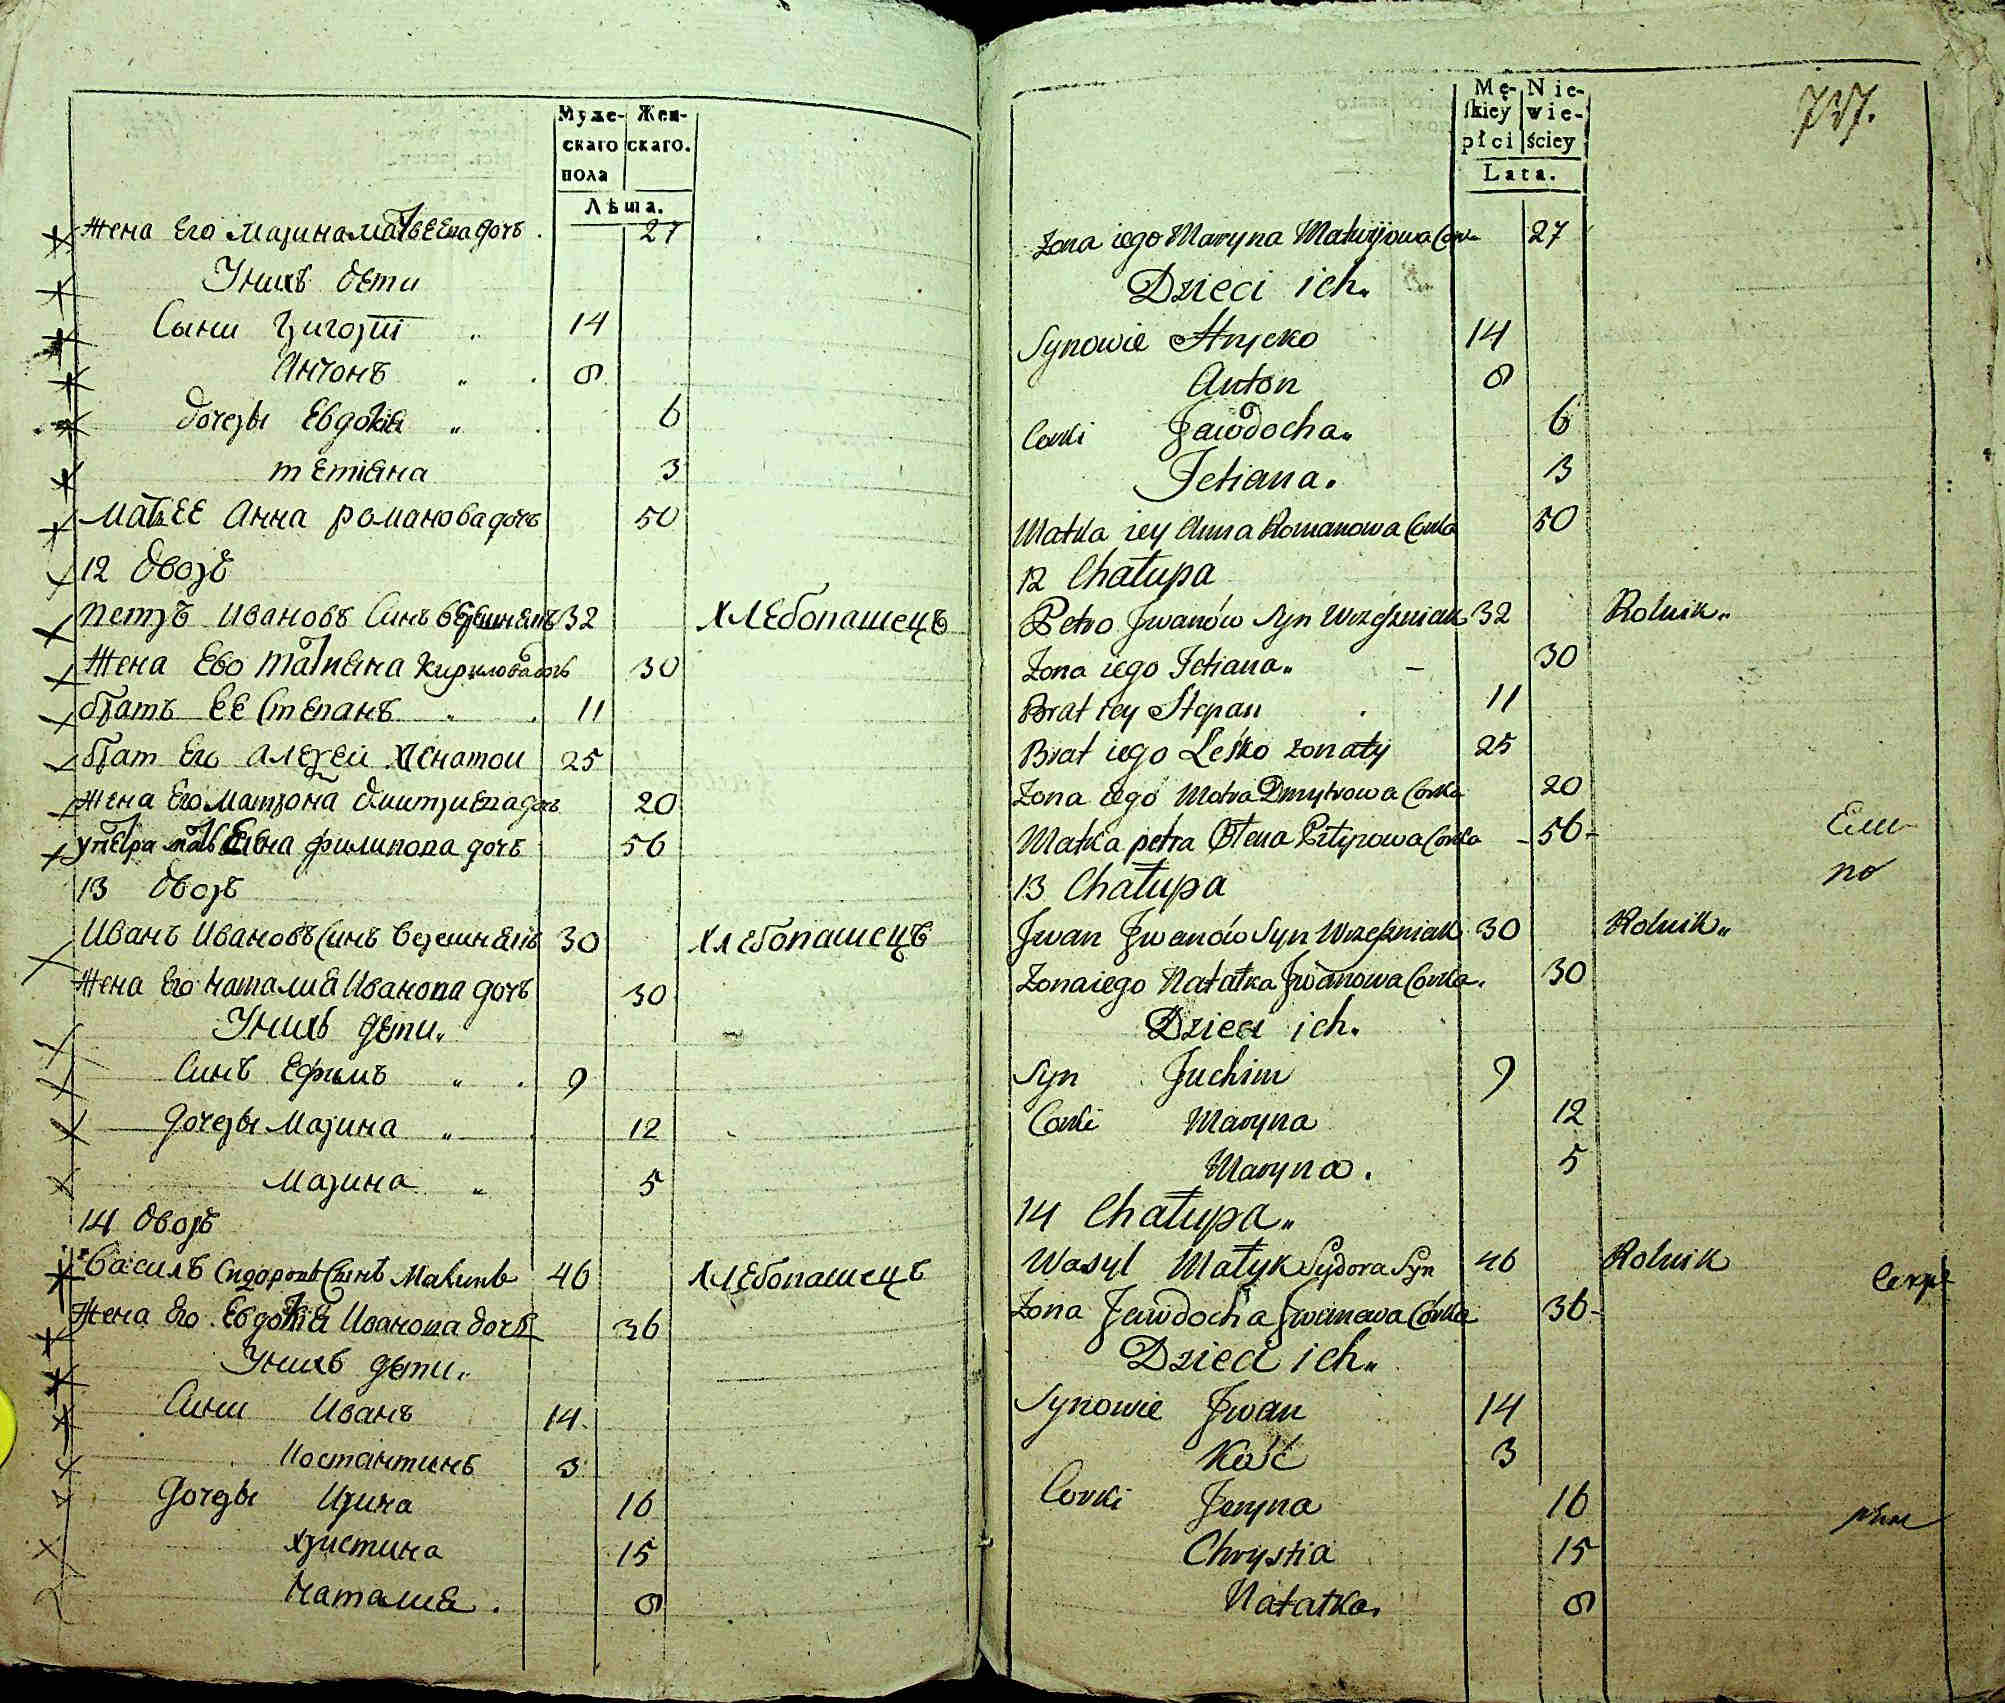 Муже- Жен-
скаго скаго.
пола
Лѣта.
Жена Его Марина Матвеева дочъ 27
Унихъ дети
Сыни Григорій 14
Антонъ 8
дочеры Евдокія 6
тетіяна 3
Мать ЕЕ Анна романова дочъ 50
12 дворъ
петръ Ивановъ Синъ 32 хлебопашецъ
Жена Ево татіяна Кирилова дочъ 30
братъ ЕЕ Степанъ 11
брат Его Алексей Женатои 25
Жена Его Матрона дмитриева дочъ 20
у петра мать филипова дочъ 56
13 дворъ
Иванъ Ивановъ Синъ 30 хлебопашецъ
Жена Его наталия Иванова дочъ 30
Унихъ дети
Синъ Ефимъ 9
дочеры Марина 12
Марина 5
14 дворъ
Василъ Сидоровъ Синъ 46 хлебопашецъ
Жена Его Евдокія Иванова дочъ 36
Унихъ дети
Сини Иванъ 14
Костантинъ 3
дочеры Ирина 16
христина 15
Наталия 8
Mę- Nie-
skiey wie-
płci ściey
Lata.
737.
Zona iego Maryna Matwijowa Corka 27
Dzieci ich.
Synowie Hryćko 14
Anton 8
Corki Jawdocha 6
Tetiana. 3
Matka iey Anna Romanowa Corka 50
12 Chałupa
Petro Jwanów Syn Wrzeszniak 32 Rolnik
Zona iego Tetiana 30
Brat iey Stepan 11
Brat iego Leśko zonaty 25
Zona iego Motra Dmytrowa Corka 20
Matka petra Ołena Pilipowa Corka 56
13 Chałupa
Jwan Jwanów Syn Wrzeszniak 30 Rolnik
Zona iego Natałka Jwanowa Corka. 30
Dzieci ich.
Syn Juchim 9
Corki Maryna 12
Maryna. 5
14 Chałupa
Wasyl Małyk Sydora Syn 46 Rolnik
Zona Jawdocha Jwanowa Córka 36
Dzieci ich
Synowie Jwan 14
Kość 3
Corki Jeryna 16
Chrystia 15
Natałka. 8